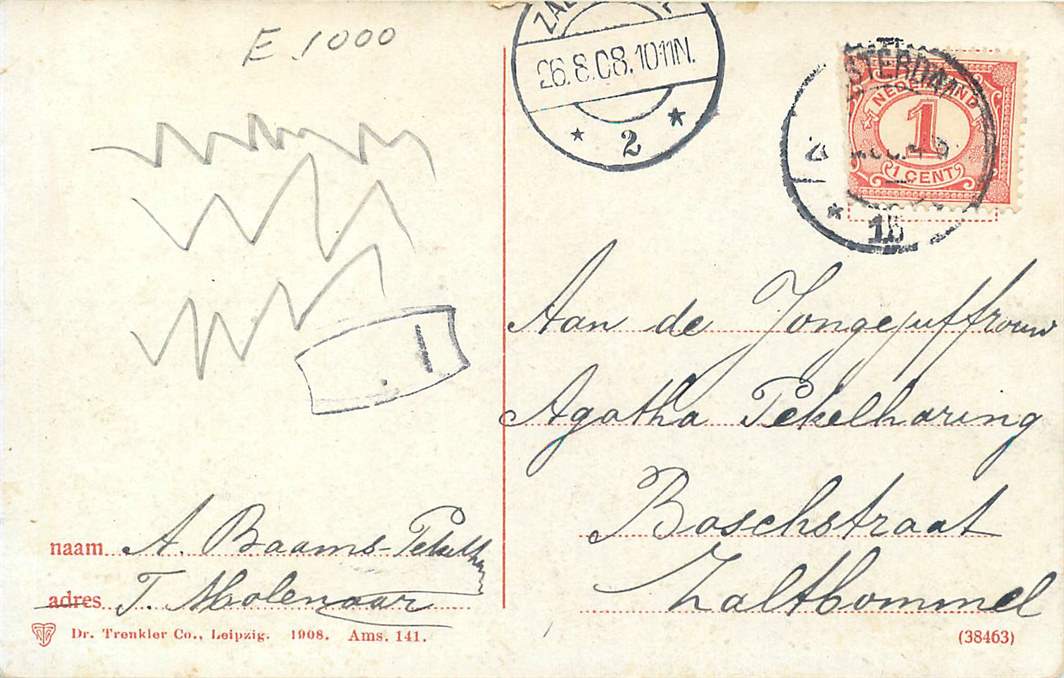 E 1000
26.8.08.1011N.
2
NEDERLAND
1
1 CENT
15
1
Aan de Jongejuffrouw
Agatha Pekelharing
Boschstraat
Zaltbommel
naam A. Baams-Pekelh
adres T. Molenaar
Dr. Trenkler Co., Leipzig. 1908. Ams. 141.
(38463)